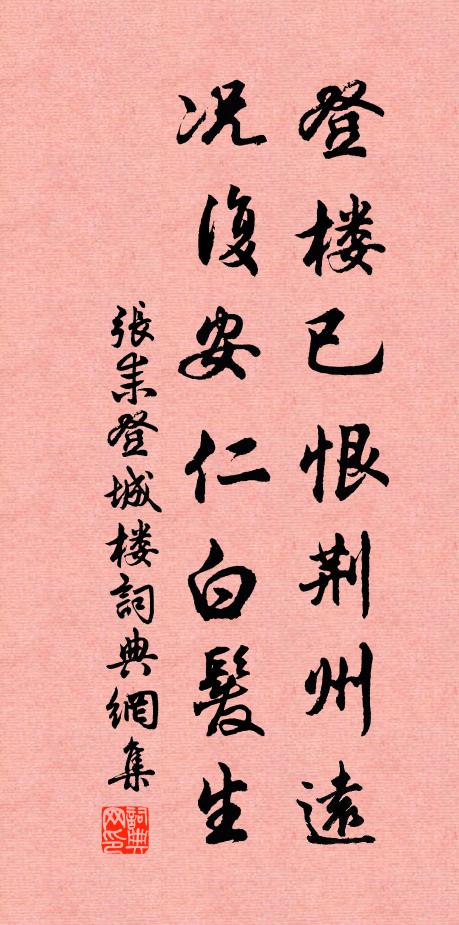 登楼已恨荆州遠
况復安仁白髮生
張耒登城楼詞典網集
詞典网印